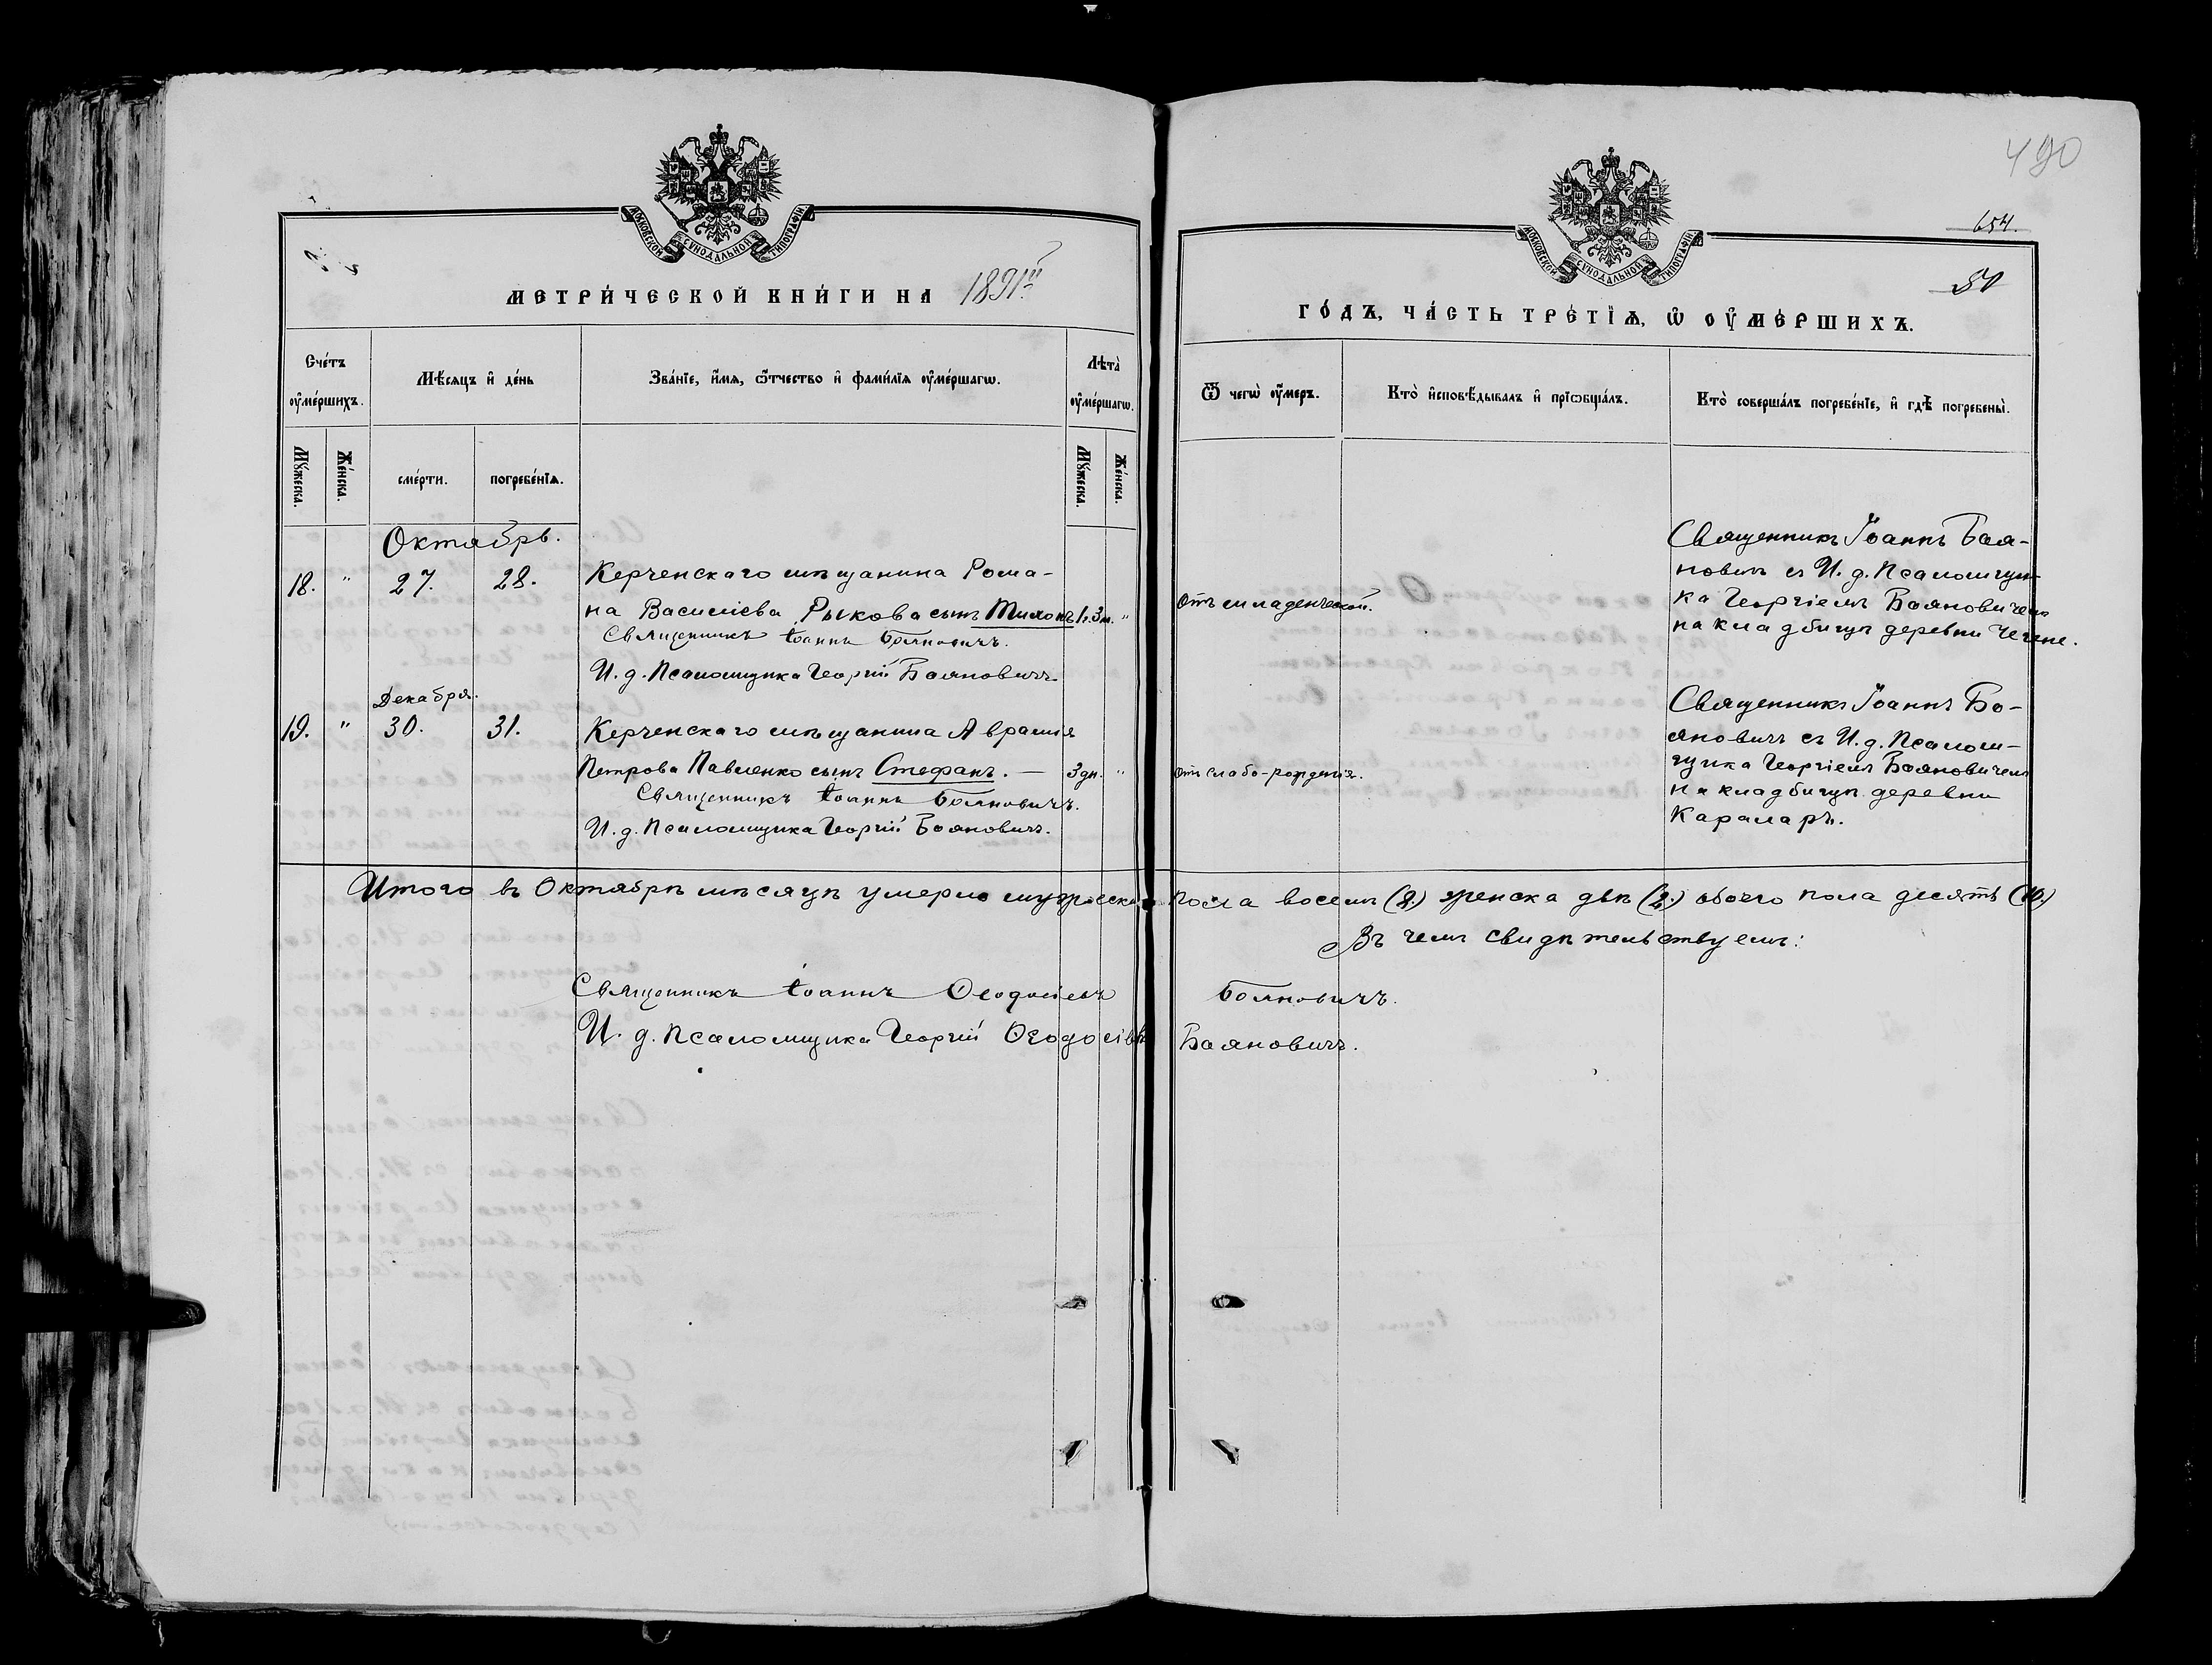 490
654.
50
МОСКОВСКОЙ СѴНОДАЛЬНОЙ ТИПОГРАФІИ
МЕТРИ́ЧЕСКОЙ КНИ́ГИ НА 1891й
МОСКОВСКОЙ СѴНОДАЛЬНОЙ ТИПОГРАФІИ
ГО́ДЪ, ЧА́СТЬ ТРЕ́ТІѦ, Ѡ҆ ОУ҆МЕ́РШИХЪ.
Сче́тъ оу҆ме́ршихъ.
Мѣ́сѧцъ и҆ де́нь
Зва́нїе, и҆́мѧ, ѻ҆́тчество и҆ фами́лїѧ оу҆ме́ршагѡ.
Лѣта̀ оу҆ме́ршагѡ.
Ѿ чегѡ̀ оу҆́меръ.
Кто̀ и҆сповѣ́дывалъ и҆ прїѡбща́лъ.
Кто̀ соверша́лъ погребе́нїе, и҆ гдѣ̀ погребены̀.
Мꙋ́жеска.
Же́нска.
сме́рти.
погребе́нїѧ.
Мꙋ́жеска.
Же́нска.
Октябрь.
18. " 27. 28. Керченскаго мѣщанина Рома-
на Василіева Рыкова сынъ Тихонъ 1г.3м. "
Священникъ Іоаннъ Бояновичъ.
И. д. Псаломщика Георгій Бояновичъ
отъ младенческой.
Священникъ Іоаннъ Боя-
новичъ съ И. д. Псаломщи-
ка Георгіемъ Бояновичемъ
на кладбищѣ деревни Чегене.
Декабря.
19. " 30. 31. Керченскаго мѣщанина Аврамія
Петрова Павленко сынъ Стефанъ. — 3 дн. "
Священникъ Іоаннъ Бояновичъ.
И. д. Псаломщика Георгій Бояновичъ.
отъ слабо-рожденія.
Священникъ Іоаннъ Бо-
яновичъ съ И. д. Псалом-
щика Георгіемъ Бояновичемъ
на кладбищѣ деревни
Караларъ.
Итого въ Октябрѣ мѣсяцѣ умерло мужеска пола восемь (8.) женска двѣ (2.) обоего пола десять (10.)
Въ чемъ свидѣтельствуемъ:
Священникъ Іоаннъ Ѳеодосіевъ Бояновичъ.
И. д. Псаломщика Георгій Ѳеодосіевъ Бояновичъ.